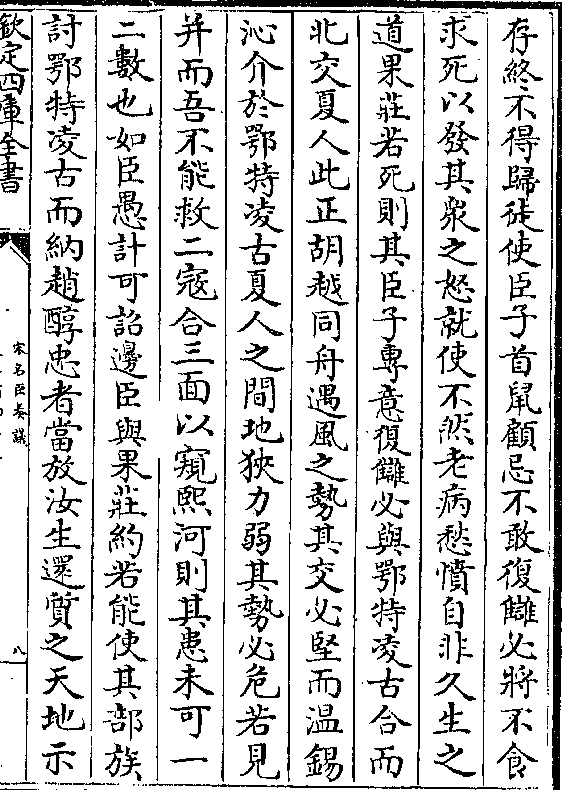 存終不得歸徒使臣子首鼠顧忌不敢復讎必將不食
求死以發其衆之怒就使不然老病愁憤自非久生之
道果莊若死則其臣子專意復讎必與鄂特凌古合而
北交夏人此正胡越同舟遇風之勢其交必堅而温錫
沁介於鄂特凌古夏人之間地狹力弱其勢必危若見
并而吾不能救二寇合三面以窺熙河則其患未可一
二數也如臣愚計可詔邊臣與果莊約若能使其部族
討鄂特凌古而納趙醇忠者當放汝生還質之天地示
欽定四庫全書
宋名臣奏議
八